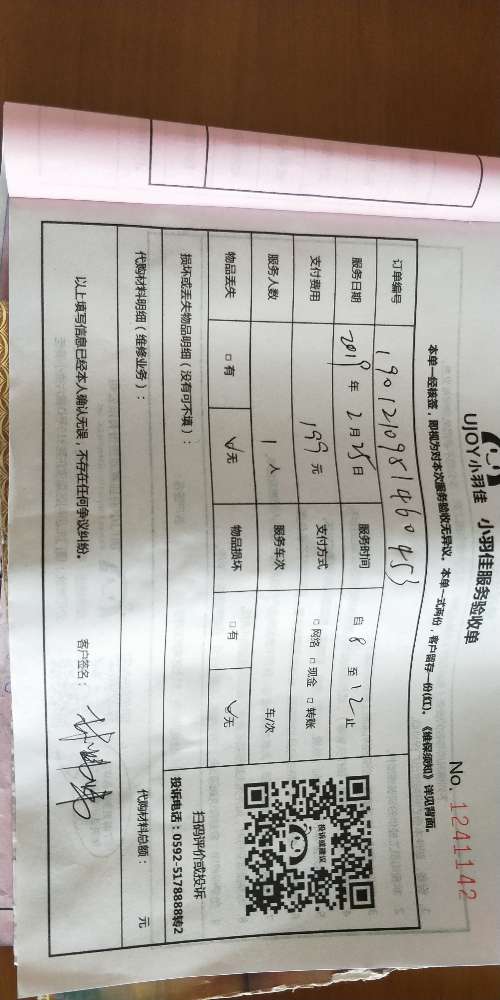 UJOY小羽佳 小羽佳服务验收单
No. 1241142
本单一经核签，即视为对本次服务验收无异议。本单一式两份，客户留存一份(红)。《维保须知》详见背面。
订单编号 190121098146045
服务日期 2019 年 2 月 25 日 服务时间 自 8 至 12 止
支付费用 199 元 支付方式 □网络 □现金 □转账
服务人数 1 人 服务车次 车/次
物品丢失 □有 ☑无 物品损坏 □有 ☑无
损坏或丢失物品明细（没有可不填）：
投诉或建议
扫码评价或投诉
投诉电话：0592-5178888转2
代购材料明细（维修业务）： 代购材料总额： 元
以上填写信息已经本人确认无误，不存在任何争议纠纷。 客户签名：